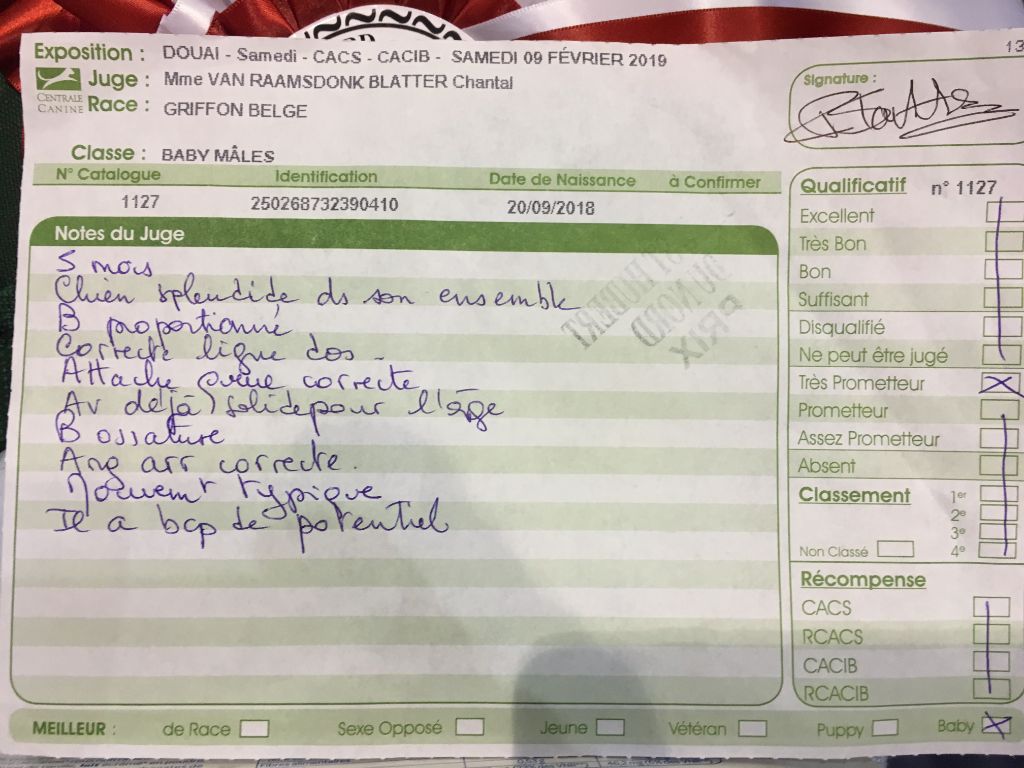 Exposition : DOUAI - Samedi - CACS - CACIB - SAMEDI 09 FÉVRIER 2019
Juge : Mme VAN RAAMSDONK BLATTER Chantal
CENTRALE CANINE
Race : GRIFFON BELGE
Classe : BABY MÂLES
N° Catalogue Identification Date de Naissance à Confirmer
1127 250268732390410 20/09/2018
Notes du Juge
5 mois
Chien splendide ds son ensemble
B proportionné
Correcte ligne dos -
Attache queue correcte
Av déjà solide pour l'âge
B ossature
Ang arr correcte.
Mouvemt typique
Il a bcp de potentiel
13
Signature :
Qualificatif n° 1127
Excellent
Très Bon
Bon
Suffisant
Disqualifié
Ne peut être jugé
Très Prometteur
Prometteur
Assez Prometteur
Absent
Classement 1er
2e
3e
Non Classé 4e
Récompense
CACS
RCACS
CACIB
RCACIB
MEILLEUR : de Race Sexe Opposé Jeune Vétéran Puppy Baby